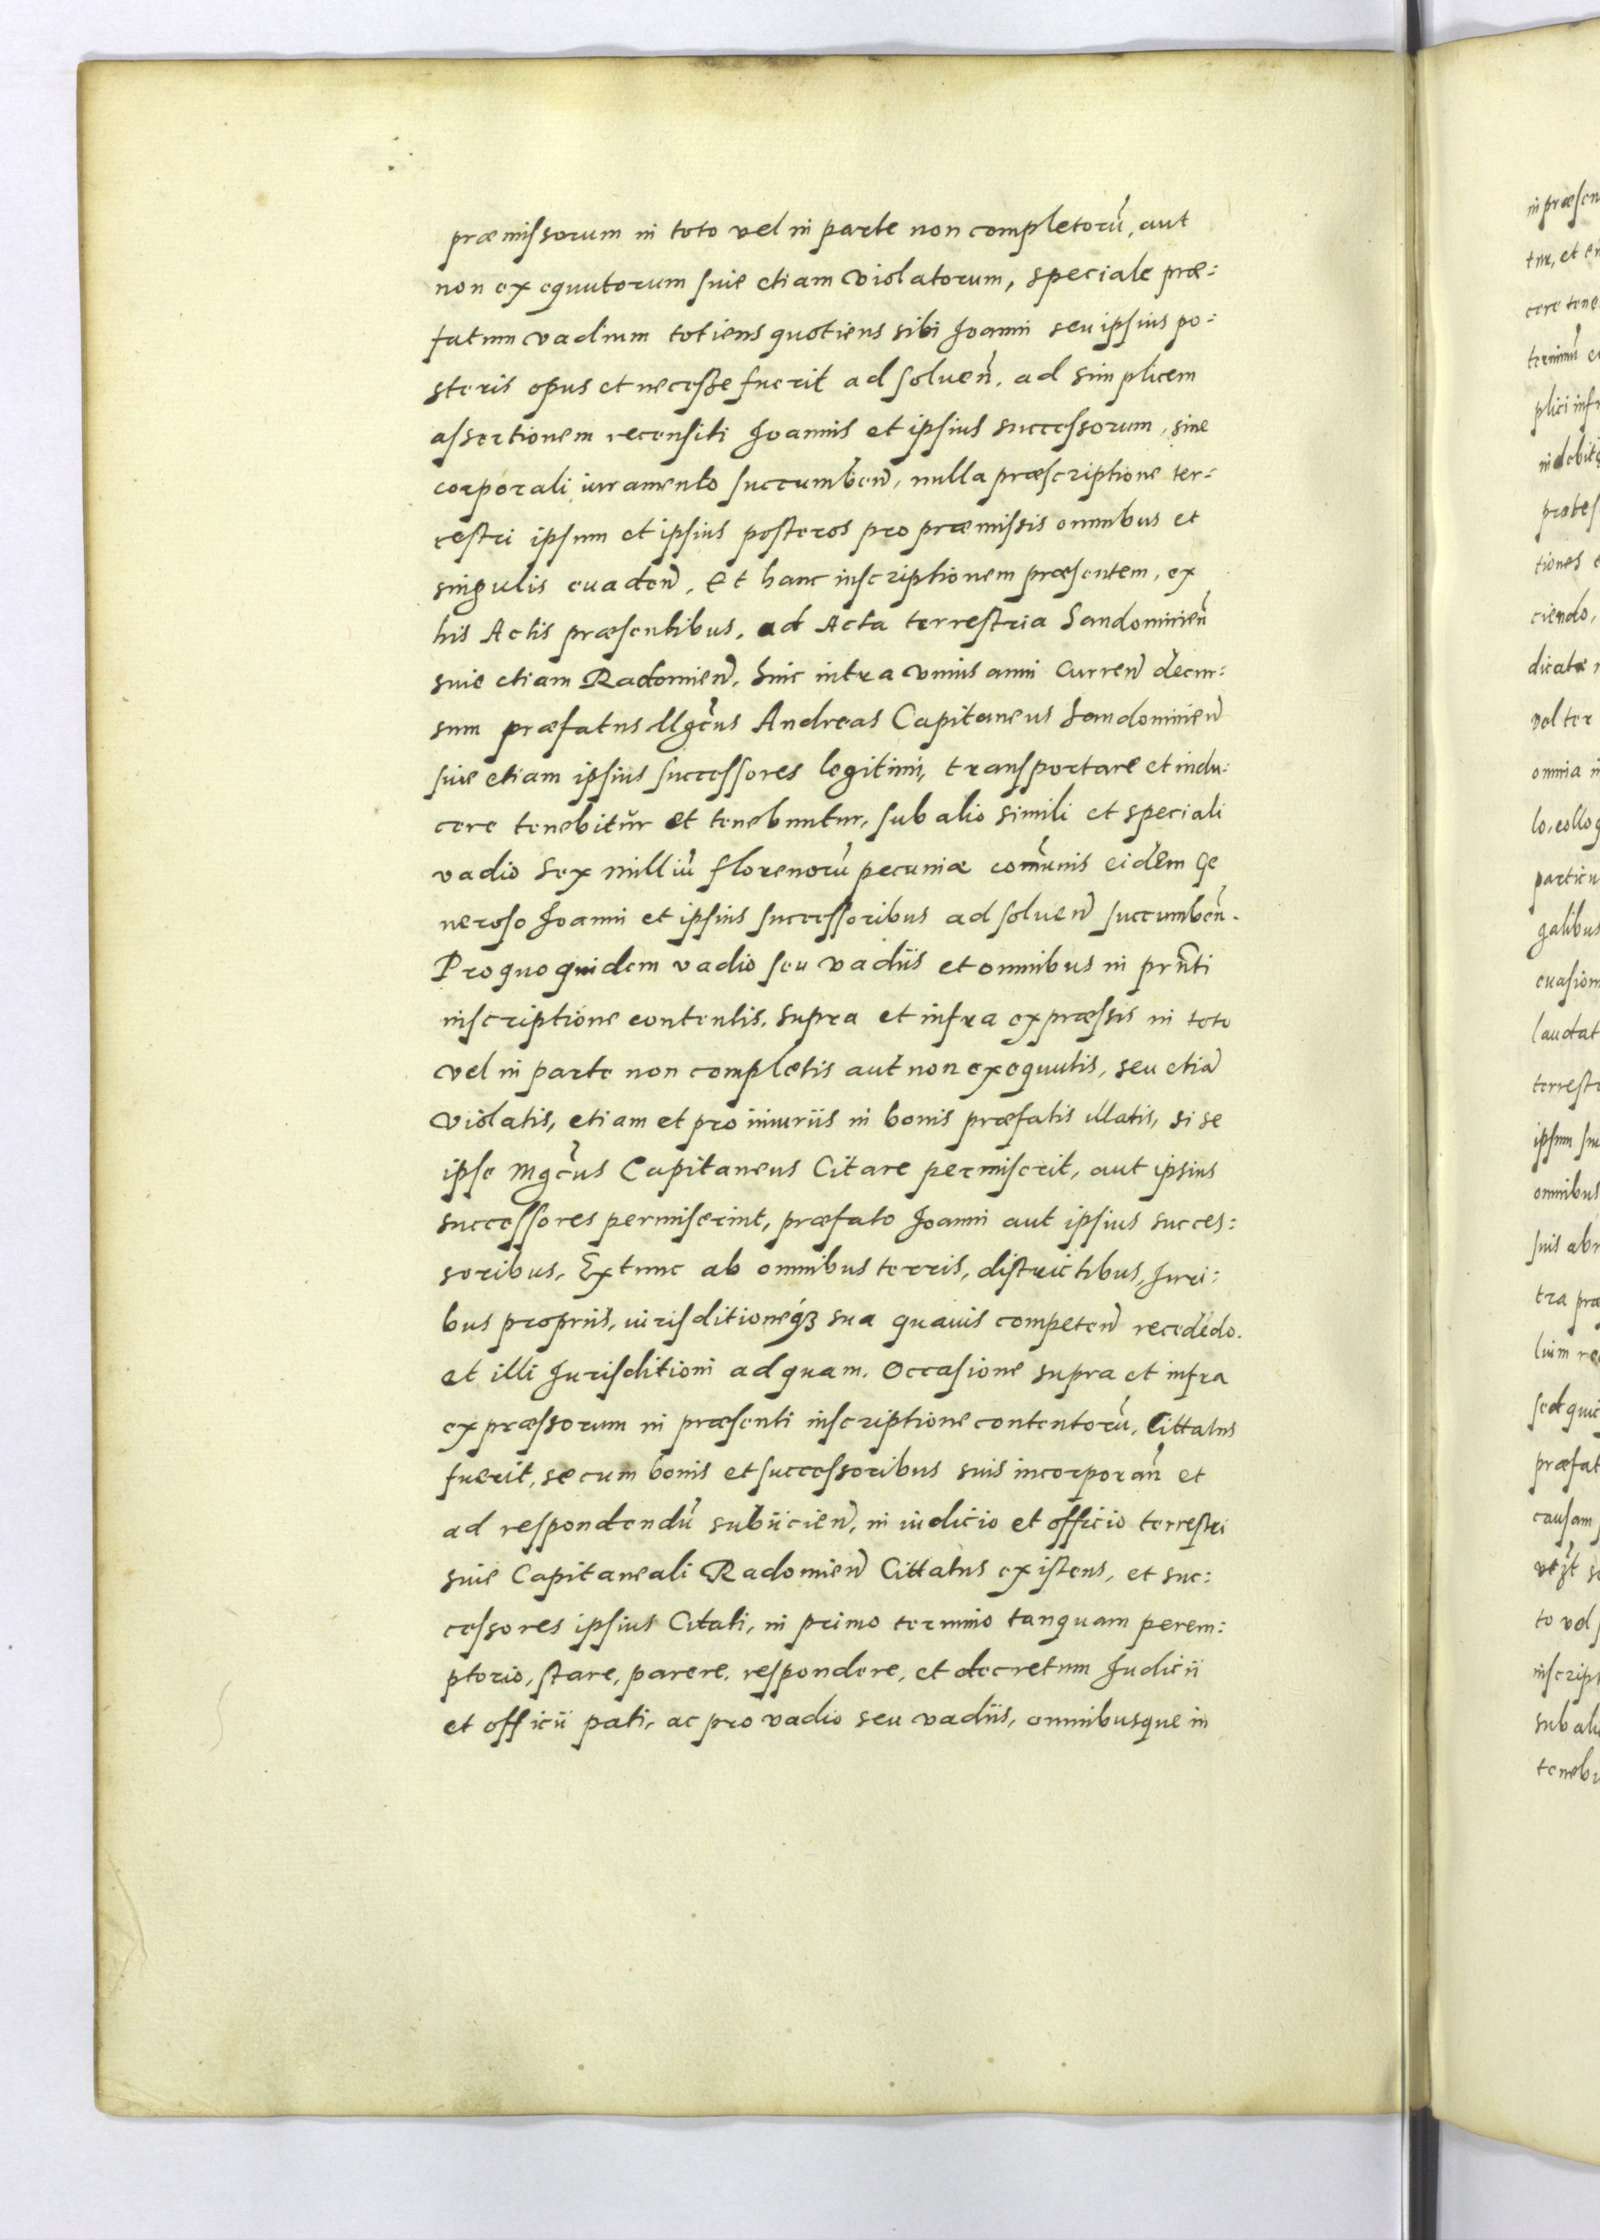 præmissorum in toto vel in parte non completorũ, aut
non exequutorum siue etiam violatorum, speciale præ:
fatum vadium totiens quotiens sibi Joanni seu ipsius po:
steris opus et necesse fuerit ad soluen̄. ad simplicem
assertionem recensiti Joannis et ipsius successorum, sine
corporali iuramento succumben̄, nulla præscriptione ter:
restri ipsum et ipsius posteros pro præmissis omnibus et
singulis euaden̄. Et hanc inscriptionem præsentem, ex
his Actis præsentibus, ad Acta terrestria Sandomirien̄
siue etiam Radomien̄, hinc intra vnius anni Curren̄ decur:
sum præfatus Mgc̄us Andreas Capitaneus Sandomirien̄
siue etiam ipsius successores legitimi, transportare et indu:
cere tenebitur et tenebuntur, sub alio simili et speciali
vadio sex milliũ florenorũ pecuniæ com̃unis eidem Ge
neroso Joanni et ipsius successoribus ad soluen̄ succumben̄.
Pro quo quidem vadio seu vadiis et omnibus in prn̄ti
inscriptione contentis, supra et infra expræssis in toto
vel in parte non completis aut non exequutis, seu etiã
violatis, etiam et pro iniuriis in bonis præfatis illatis, si se
ipse Mgc̄us Capitaneus Citare permiserit, aut ipsius
successores permiserint, præfato Joanni aut ipsius succes:
soribus, Extunc ab omnibus terris, districtibus, Juri:
bus propriis, iurisditioneq́ꝫ sua quauis competen̄ recedẽdo.
et illi Jurisditioni ad quam. Occasione supra et infra
expræssorum in præsenti inscriptione contentorũ, Cittatus
fuerit, se cum bonis et successoribus suis incorporan̄ et
ad respondendũ subiicien̄, in iudicio et officio terrestri
siue Capitaneali Radomien̄ Cittatus existens, et suc:
cessores ipsius Citati, in primo termino tanquam perem:
ptorio, stare, parere, respondere, et decretum Judicii
et officii pati, ac pro vadio seu vadiis, omnibusque in